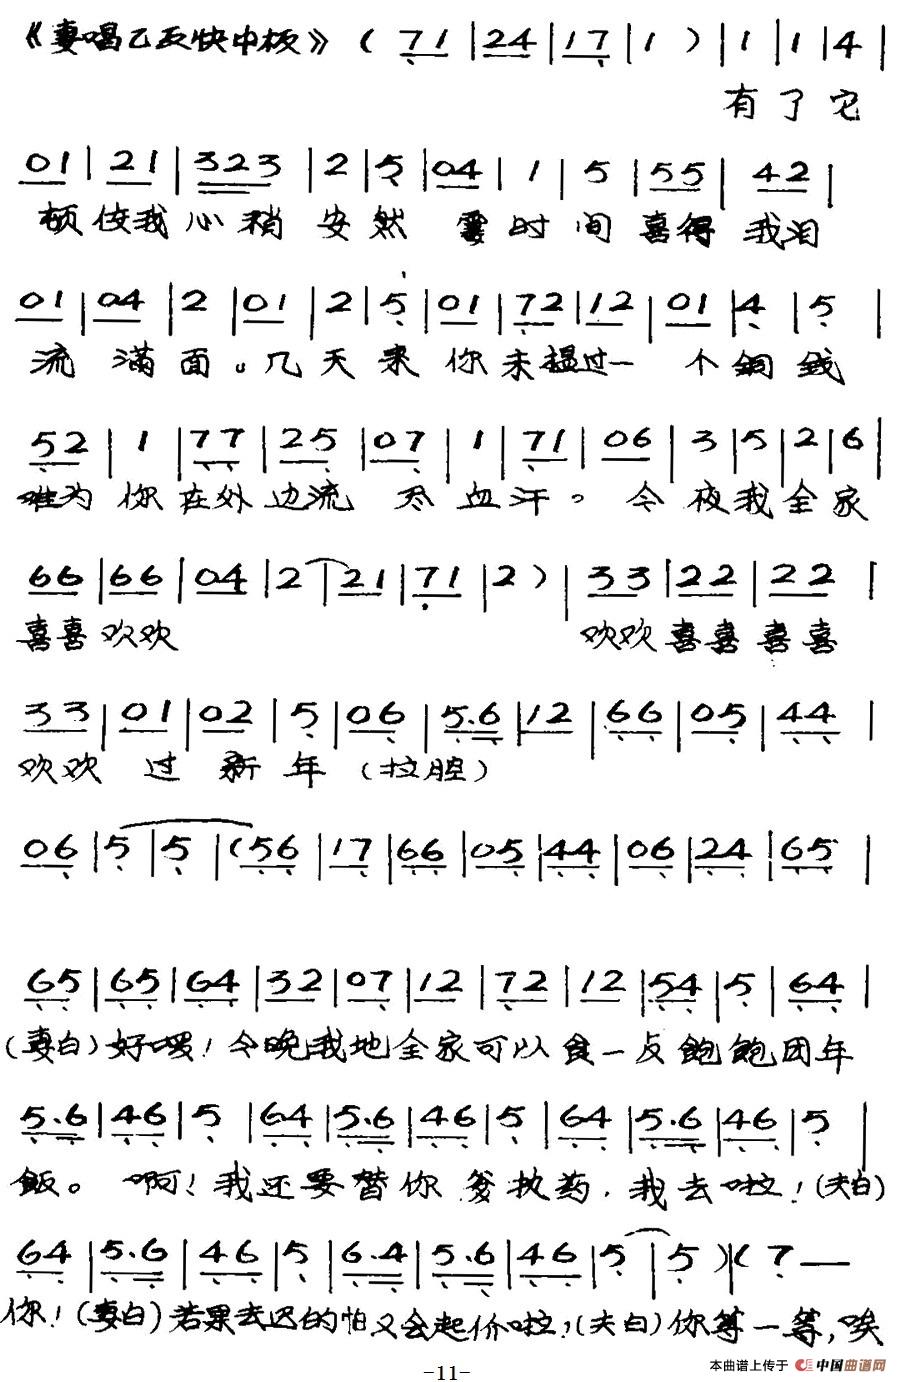 《妻唱乙反快中板》 ( 71 | 24 | 17 | 1 ) | 1 | 1 | 4 |
有了它
01 | 21 | 323 | 2 | 5 | 04 | 1 | 5 | 55 | 42 |
顿使我心稍安然 霎时间喜得我泪
01 | 04 | 2 | 01 | 2 | 5 | 01 | 72 | 12 | 01 | 4 | 5 |
流满面。几天来你未揾过一个铜钱
52 | 1 | 77 | 25 | 07 | 1 | 71 | 06 | 3 | 5 | 2 | 6 |
难为你在外边流尽血汗。今夜我全家
66 | 66 | 04 | 2 | 21 | 71 | 2 ) | 33 | 22 | 22 |
喜喜欢欢 欢欢喜喜喜喜
33 | 01 | 02 | 5 | 06 | 5.6 | 12 | 66 | 05 | 44 |
欢欢过新年(拉腔)
06 | 5 | 5 | (56 | 17 | 66 | 05 | 44 | 06 | 24 | 65 |
65 | 65 | 64 | 32 | 07 | 12 | 72 | 12 | 54 | 5 | 64 |
(妻白)好嘢!今晚我地全家可以食一点饱饱团年
5.6 | 46 | 5 | 64 | 5.6 | 46 | 5 | 64 | 5.6 | 46 | 5 |
饭。啊!我还要替你爹执药,我去啦!(夫白)
64 | 5.6 | 46 | 5 | 6.4 | 5.6 | 46 | 5 | 5 )( 7 —
你!(妻白)若果去迟的怕又会起价啦,(夫白)你等一等,唉
-11-
本曲谱上传于 中国曲谱网